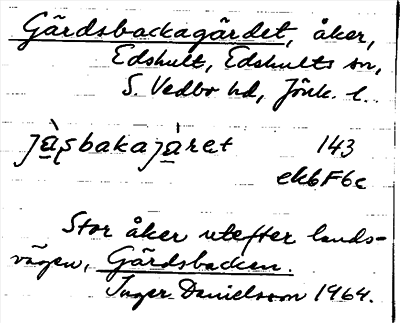 Gärdsbackagärdet, åker,
Edshult, Edshults sn,
S. Vedbo hd, Jönk. l.
jà̱ʂbakajà̱ret 143
ek6F6c
Stor åker utefter lands-
vägen, Gärdsbacken.
Inger Danielsson 1964.